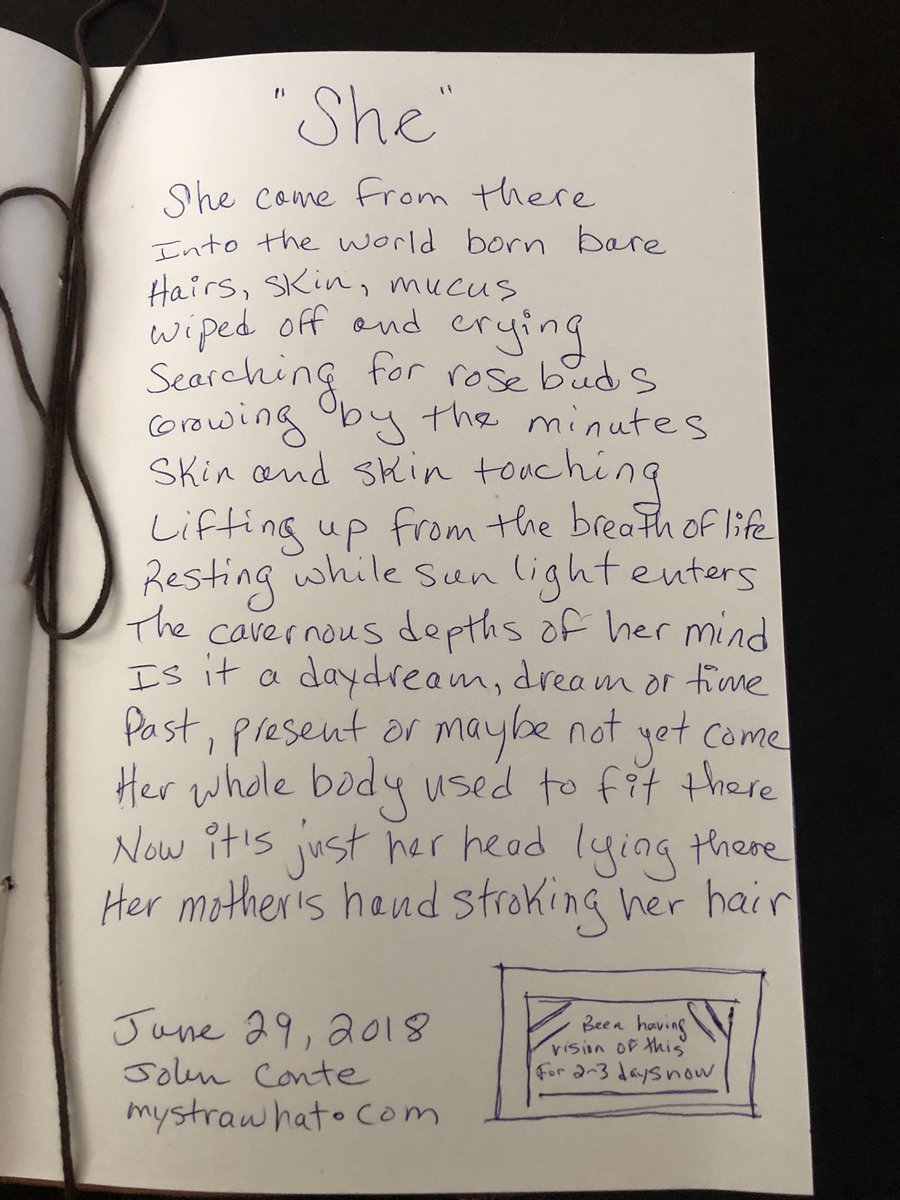 "She"
She came from there
Into the world born bare
Hairs, skin, mucus
Wiped off and crying
Searching for rose buds
Growing by the minutes
Skin and skin touching
Lifting up from the breath of life
Resting while sun light enters
The cavernous depths of her mind
Is it a daydream, dream or time
Past, present or maybe not yet come
Her whole body used to fit there
Now it's just her head lying there
Her mother's hand stroking her hair
June 29, 2018
John Conte
mystrawhat.com
Been having
vision of this
for 2-3 days now